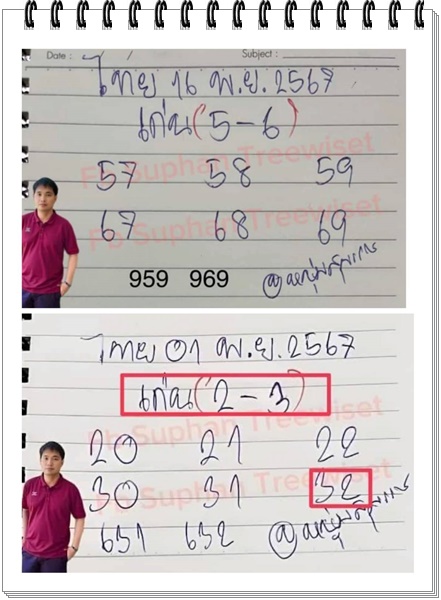 Date :
Subject :
ไทย 16 พ.ย. 2567
เด่น (5-6)
57 58 59
67 68 69
Fb Suphan Treewiset
959 969
ไทย 01 พ.ย. 2567
เด่น (2-3)
20 21 22
30 31 32
Fb Suphan Treewiset
651 632